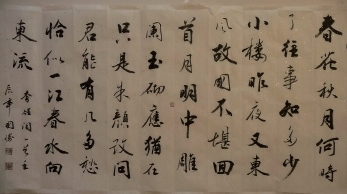 春花秋月何時
了往事知多少
小樓昨夜又東
風故國不堪回
首月明中雕
闌玉砌應猶
只是朱顏改問
君能有几多愁
恰似一江春水向
東流
李煜詞一首